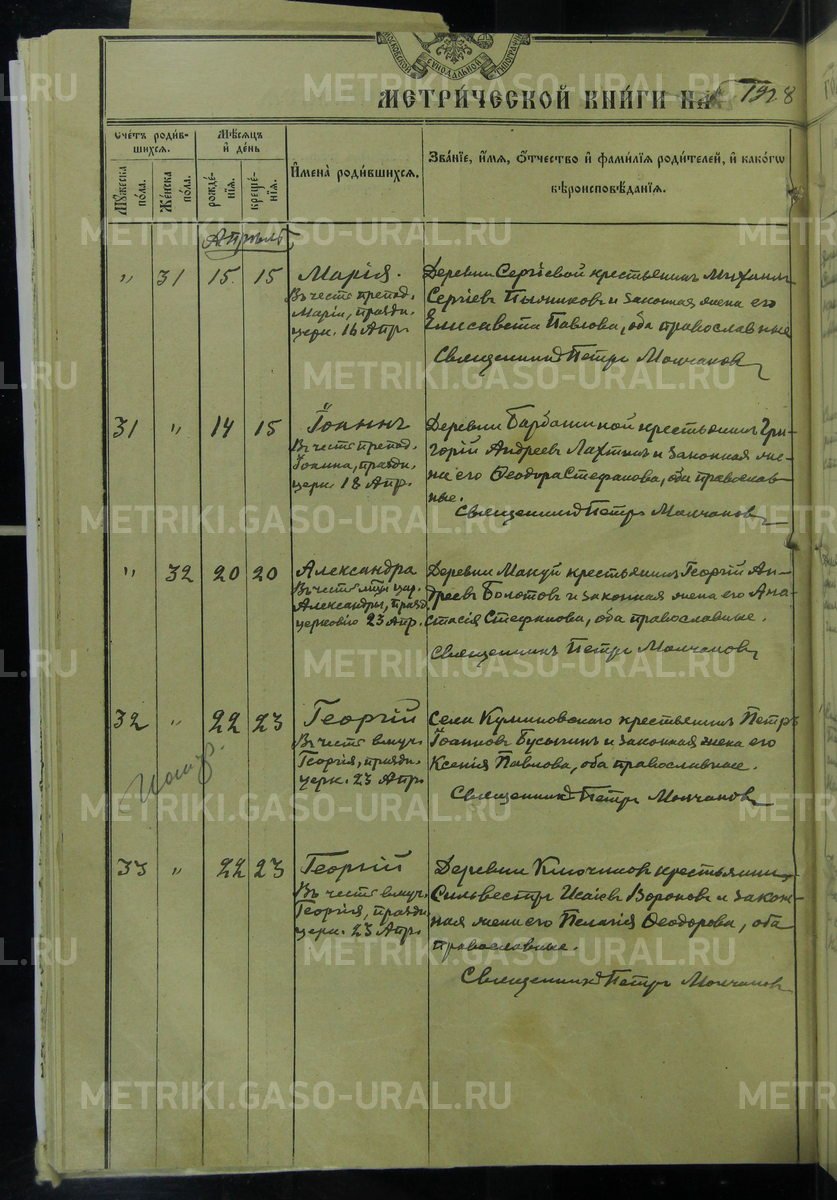 МОСКОВСКОЙ СѴНОДАЛЬНОЙ ТИПОГРАФІИ
МЕТРИ́ЧЕСКОЙ КНИ́ГИ НА 1918
Счетъ роди́в-
шихся.
Мѣсяцъ
и день
Мꙋжеска по́ла.
Же́нска по́ла.
рождє́-нїѧ.
крещє́-нїѧ.
Имена̀ роди́вшихсѧ.
Зва́нїе, и́мѧ, ѻ҆́тчество и҆ фами́лїѧ роди́телей, и҆ како́гѡ
вѣроисповѣ́данїѧ.
Апрѣль
" 31 15. 15 Марія.
Въ честь препод.
Маріи, праздн.
церк. 1 Апр.
Деревни Сергіевой крестьянинъ Михаилъ
Сергіевъ и законная жена его
Елисавета Павлова, оба православные
Священникъ Петръ Молчановъ
31 " 14 15 Іоаннъ
Въ честь препод.
Іоанна, праздн.
церк. 18 Апр.
Деревни крестьянинъ Гри-
горій Андреевъ Лахтинъ и законная же-
на его Ѳеодора Стефанова, оба православ-
ные.
Священникъ Петръ Молчановъ
" 32 20 20 Александра
Въ честь мц. цар.
Александры, празд.
церковію 23 Апр.
Деревни Макуй крестьянинъ Георгій Ан-
дреевъ Болотовъ и законная жена его Ана-
стасія Стефанова, оба православные.
Священникъ Петръ Молчановъ
32 " 22 23 Георгій
Въ честь вмуч.
Георгія, праздн.
церк. 23 Апр.
Села крестьянинъ Петръ
Іоанновъ Бусыгинъ и законная жена его
Ксенія Павлова, оба православные.
Священникъ Петръ Молчановъ
33 " 22 23 Георгій
Въ честь вмуч.
Георгія, праздн.
церк. 23 Апр.
Деревни Ключиковъ крестьянинъ
Сильвестръ Исаіевъ Вороновъ и закон-
ная жена его Пелагія Ѳеодорова, оба
православные.
Священникъ Петръ Молчановъ
METRIKI.GASO-URAL.RU